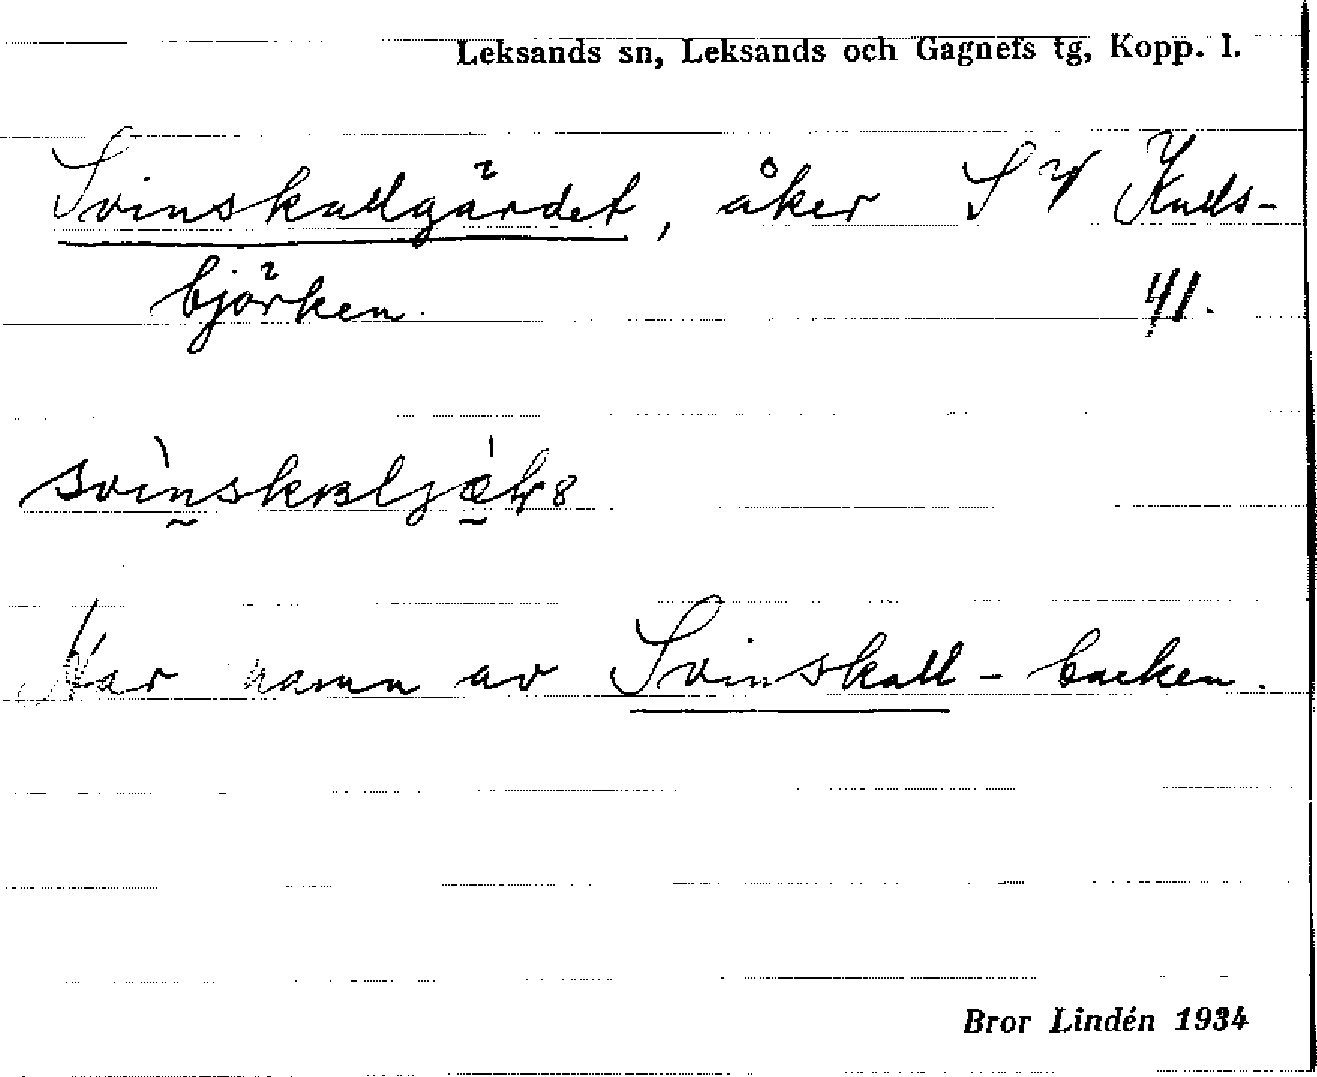 Leksands sn, Leksands och Gagnefs tg, Kopp. l.
Svinskallgärdet, åker S V Kulls-
björken. 41.
Har namn av Svinskall-backen.
Bror Lindén 1934